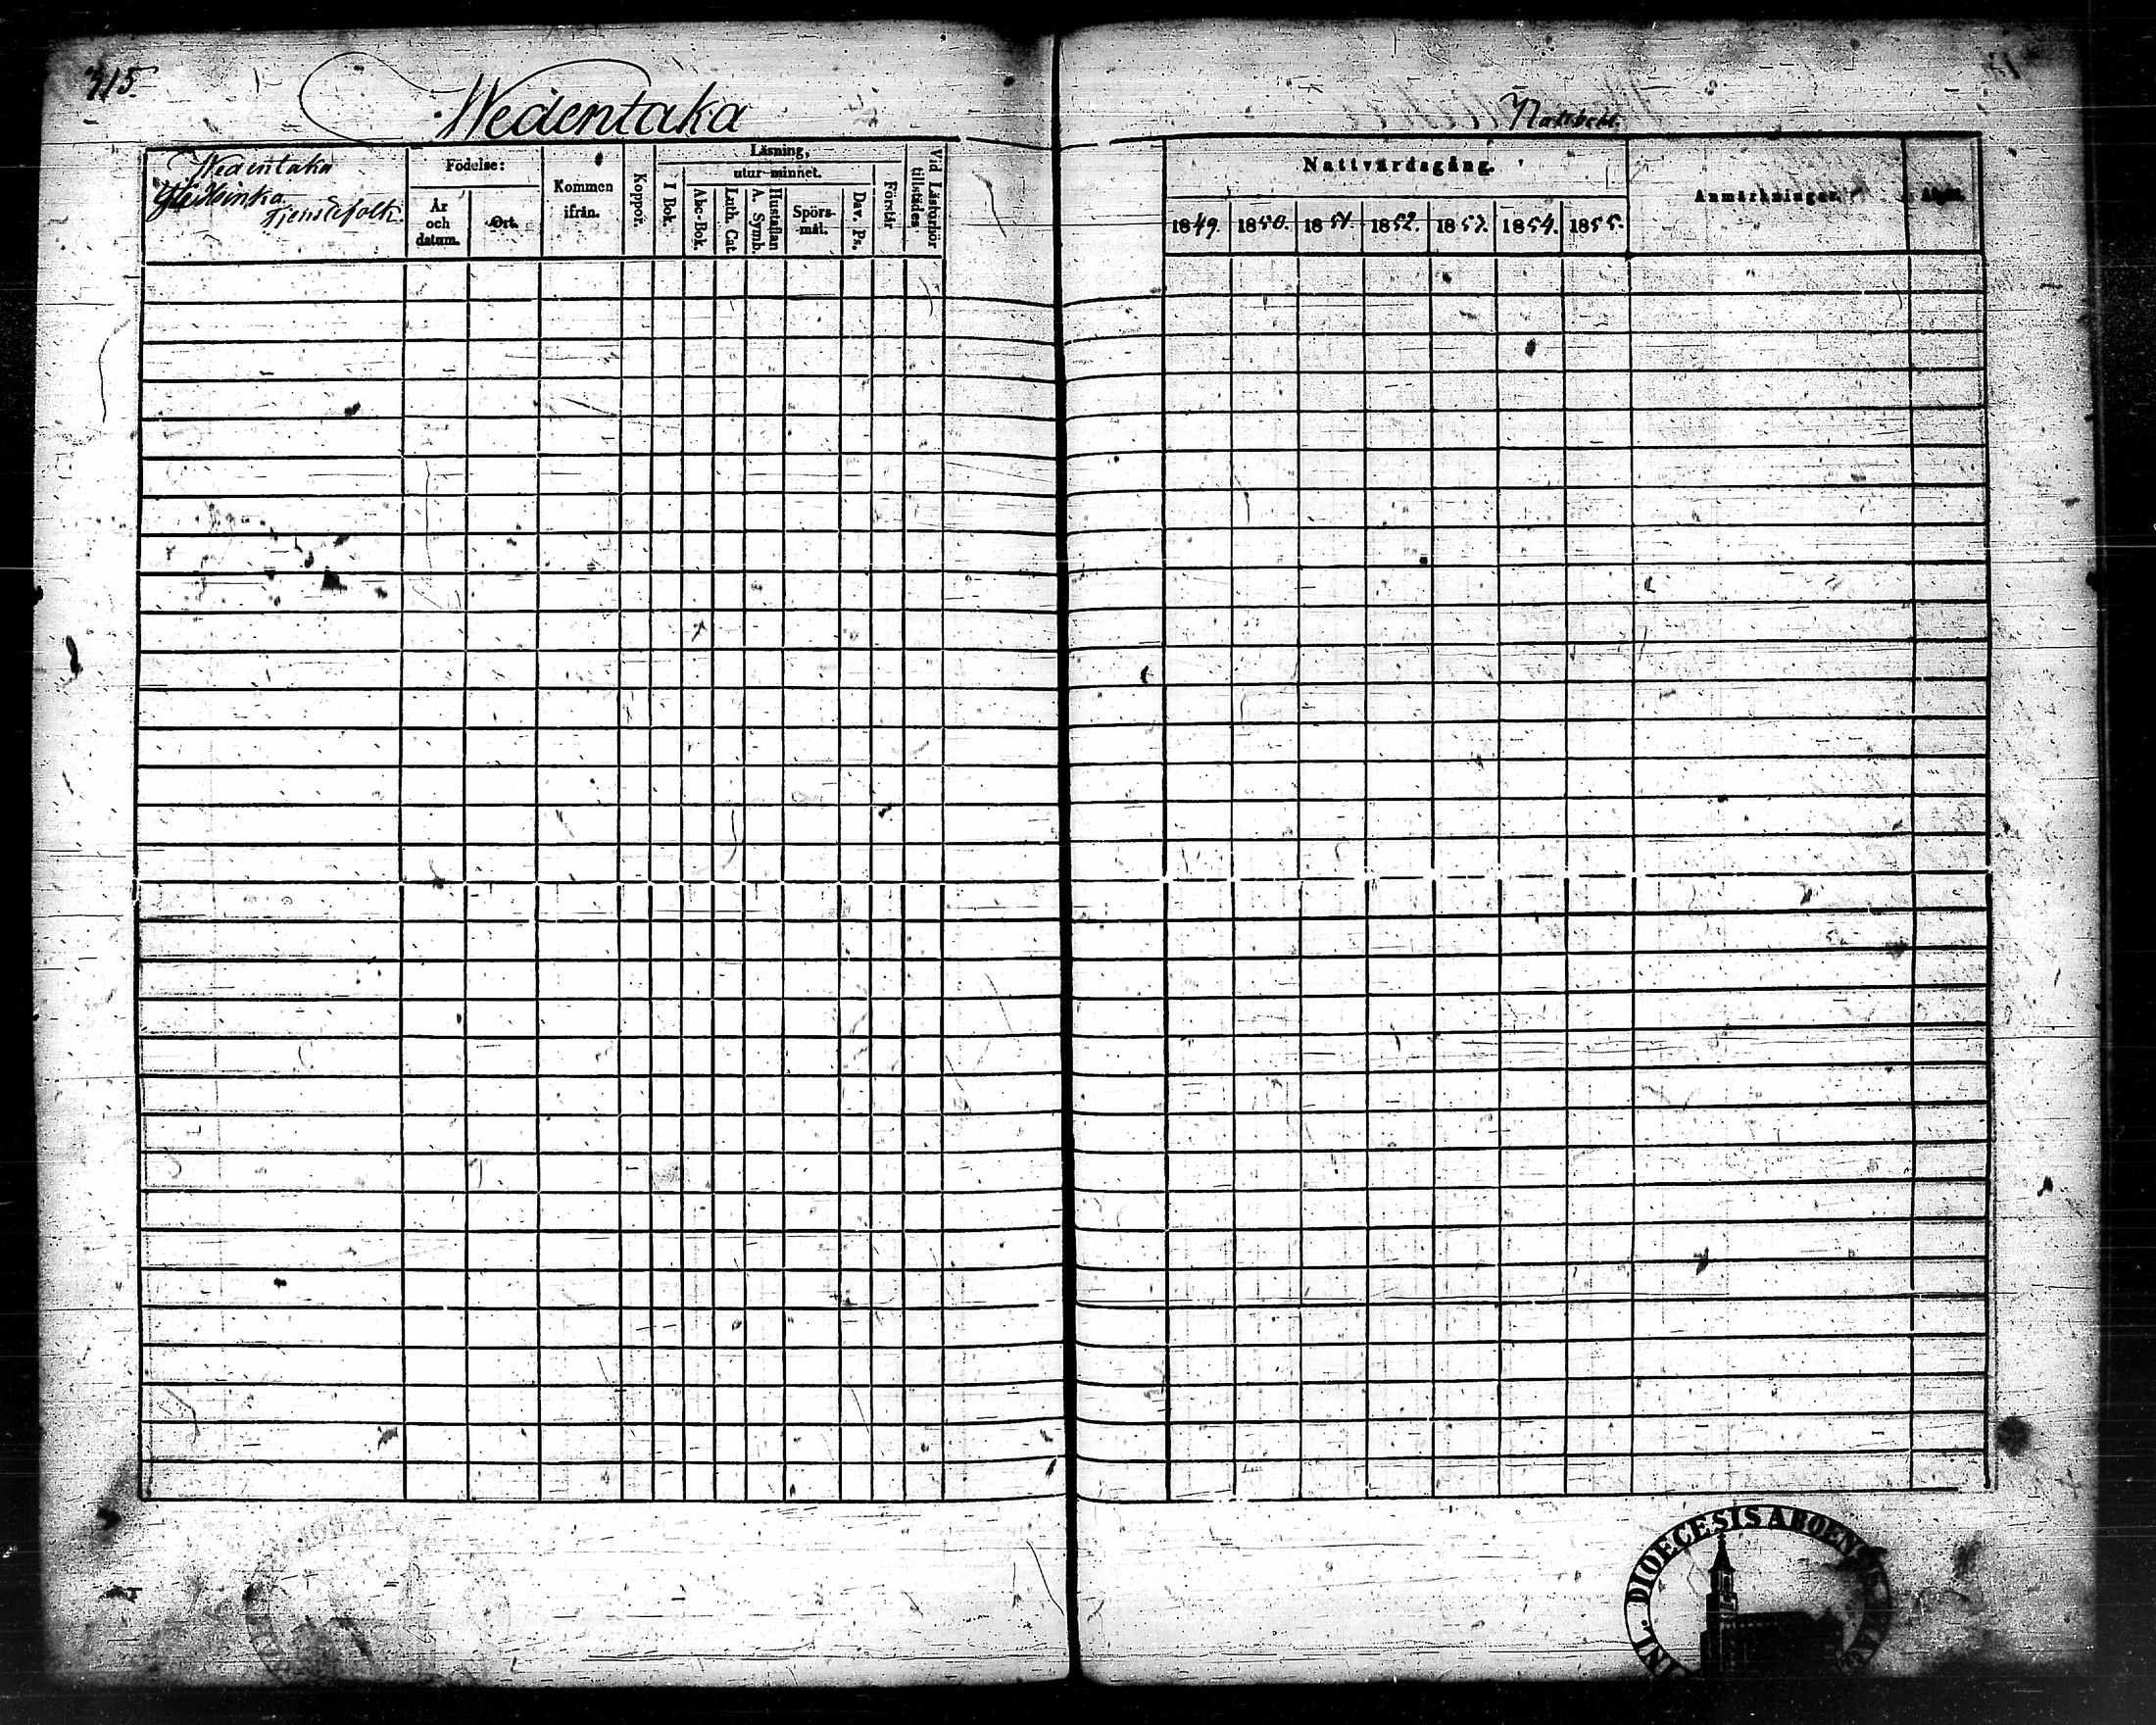 315.
Wedentaka
Wedentaka
Tjenstefolk.
Födelse:
År och datum.
Ort.
Kommen ifrån.
Koppor.
Läsning,
utur minnet.
I Bok.
Abc-Bok.
Luth. Cat
A. Symb. Hustaflan
Spörs-mål.
Dav. Ps.
Förstår
Vid Läsförhör tillstädes
Nattvardsgång.
1849. 1850. 1851. 1852. 1853. 1854. 1855.
Anmärkningar.
DIOECESIS ABOENSIS